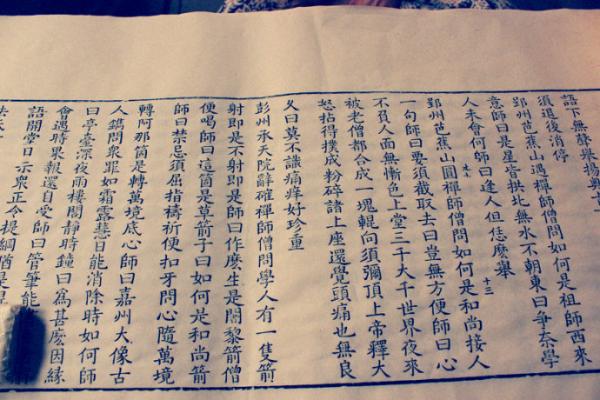 語下無聲舉揚奧旨
須退後消停
郢州芭蕉山遇禪師僧問如何是祖師西來
意師曰是星皆拱北無水不朝東曰爭奈學
人未會何師曰逢人但恁麼舉 十三
郢州芭蕉山圓禪師僧問如何是和尚接人
一句師曰要須截取去曰豈無方便師曰心
不負人面無慚色上堂三千大千世界夜來
被老僧都合成一塊輥向須彌頂上帝釋大
怒拈得撲成粉碎諸上座還覺頭痛也無良
久曰莫不識痛痒好珍重
彭州承天院辭確禪師僧問學人有一隻箭
射即是不射即是師曰作麼生是闍黎箭僧
便喝師曰這箇是草箭子曰如何是和尚箭
師曰禁忌須屈指禱祈便扣牙問心隨萬境
轉阿那箇是轉萬境底心師曰嘉州大像古
人鐫問衆罪如霜露慧日能消除時如何師
曰亭臺深夜雨樓閣靜時鐘曰爲甚麼因緣
會遇時果報還自受師曰管筆能
語開堂日示衆正令提綱猶是